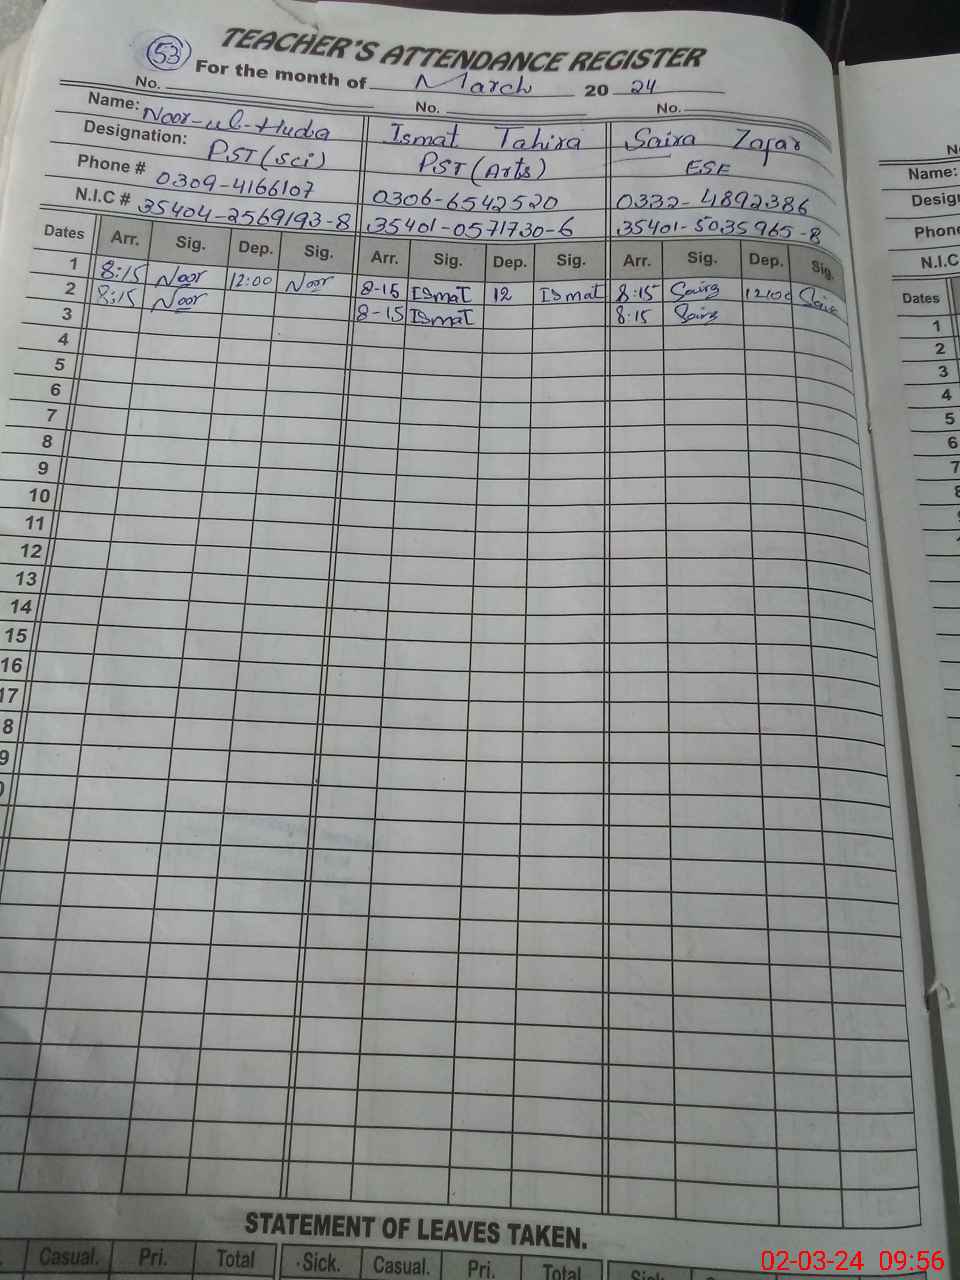 53
TEACHER'S ATTENDANCE REGISTER
For the month of March 20 24
No. No. No.
Name: Noor-ul-Huda Ismat Tahira Saira Zafar
Designation: PST(sci) PST(Arts) ESE
Phone # 0309-4166107 0306-6542520 0332-4892386
N.I.C # 35404-2569193-8 35401-0571730-6 35401-5035965-8
Dates Arr. Sig. Dep. Sig. Arr. Sig. Dep. Sig. Arr. Sig. Dep. Sig.
1 8:15 Noor 12:00 Noor 8-15 Ismat 12 Ismat 8:15 Saira 12:00 Saira
2 8:15 Noor 8-15 Ismat 8:15 Saira
3
4
5
6
7
8
9
10
11
12
13
14
15
16
17
8
9
STATEMENT OF LEAVES TAKEN.
Casual. Pri. Total Sick. Casual. Pri. Total Sick.
Name:
Phone
N.I.C
Dates
1
2
3
4
5
6
7
02-03-24 09:56